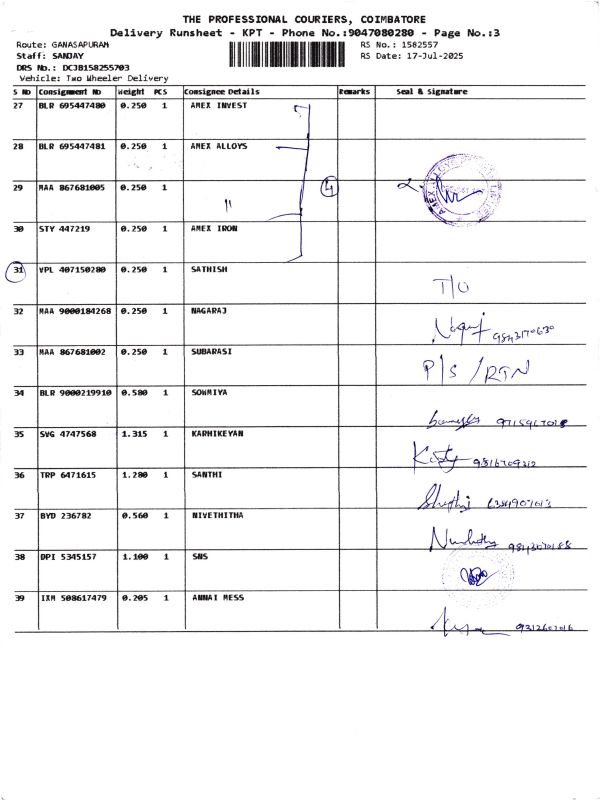 THE PROFESSIONAL COURIERS, COIMBATORE
Delivery Runsheet - KPT - Phone No.:9047080280 - Page No.:3
Route: GANASAPURAM
RS No.: 1582557
Staff: SANJAY
RS Date: 17-Jul-2025
DRS No.: DCJB158255703
Vehicle: Two Wheeler Delivery
S No Consignment No Weight PCS Consignee Details Remarks Seal & Signature
27 BLR 695447480 0.250 1 AMEX INVEST
28 BLR 695447481 0.250 1 AMEX ALLOYS
29 MAA 867681005 0.250 1 " 4
30 STY 447219 0.250 1 AMEX IRON
31 VPL 407150280 0.250 1 SATHISH T/O
32 MAA 9000184268 0.250 1 NAGARAJ
33 MAA 867681002 0.250 1 SUBARASI P/S /RTN
34 BLR 9000219910 0.580 1 SOWMIYA
35 SVG 4747568 1.315 1 KARHIKEYAN
36 TRP 6471615 1.280 1 SANTHI
37 BYD 236782 0.560 1 NIVETHITHA
38 DPI 5345157 1.100 1 SNS
39 IXM 508617479 0.205 1 ANNAI MESS